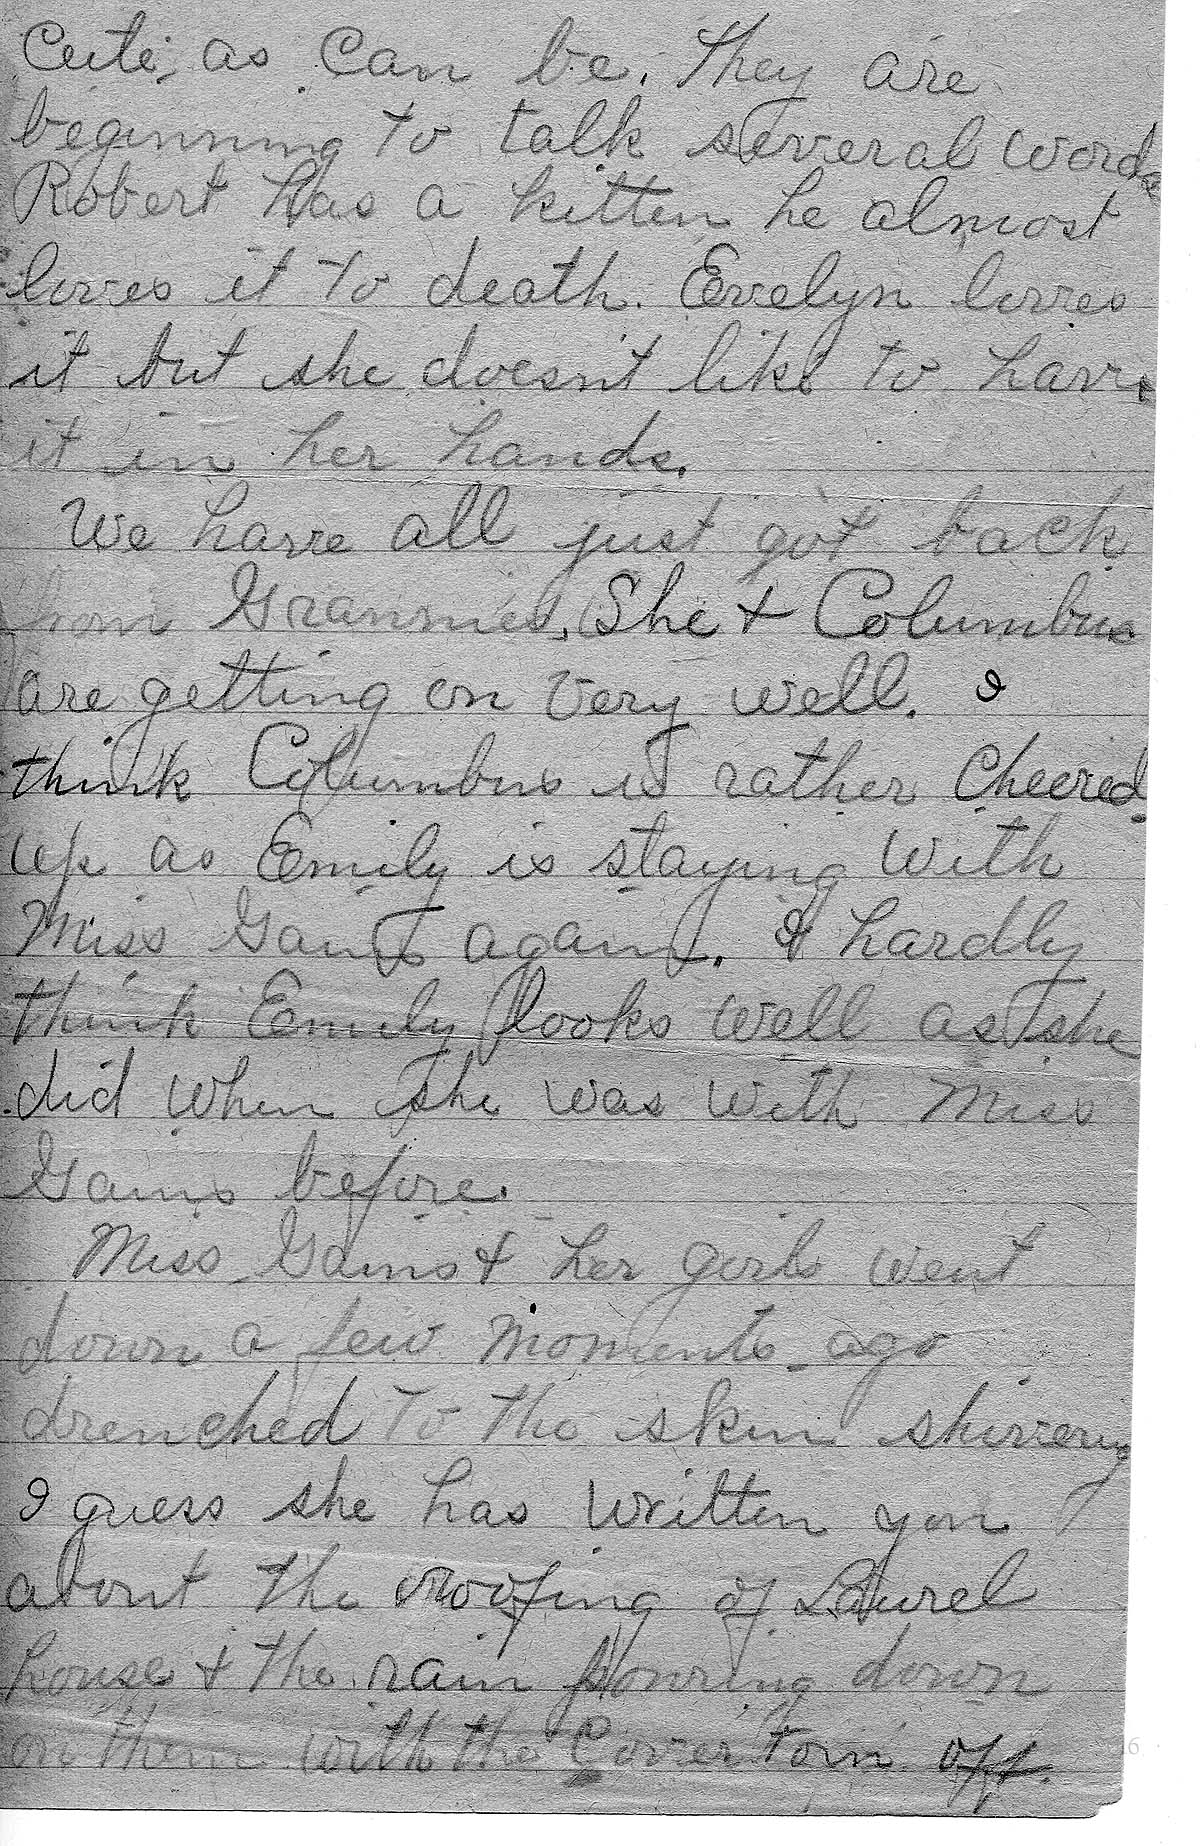 Cute as can be. They are
beginning to talk several words
Robert has a kitten he almost
loves it to death. Evelyn loves
it but she doesn't like to have
it in her hands.
We have all just got back
from Grannies. She & Columbus
are getting on very well. I
think Columbus is rather cheered
up as Emily is staying with
Miss Gains again. I hardly
think Emily looks well as she
did when she was with Miss
Gains before.
Miss Gains & her girls went
down a few moments ago
drenched to the skin shivering
I guess she has written you
about the roofing of Laurel
house & the rain pouring down
on them with the Cover torn off.